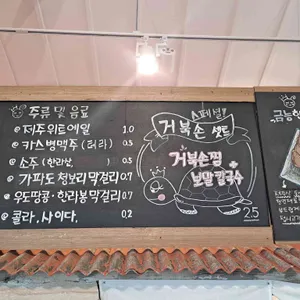 주류 및 음료
제주위트에일 1.0
카스병맥주 (테라) 0.5
소주 (한라산, ) 0.5
가파도 청보리막걸리 0.7
우도땅콩·한라봉막걸리 0.7
콜라, 사이다. 0.2
스페셜!
거북손 세트
거북손찜
보말칼국수
2.5